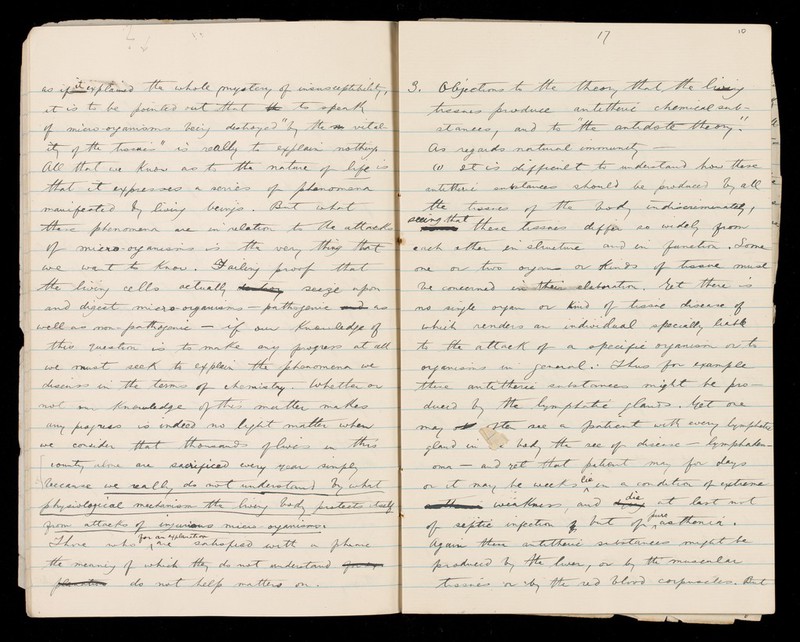 as if it explained the whole mystery of insusceptibility,
it is to be pointed out that to speak
of micro-organisms being destroyed "by the vital-
ity of the tissues" is really to explain nothing.
All that we know as to the nature of life is
that it expresses a series of phenomena
manifested by living beings. But what
these phenomena are in relation to the attacks
of micro-organisms is the very thing that
we want to know. Failing proof that
the living cells actually seize upon
and digest micro-organisms – pathogenic as
well as non pathogenic – if our knowledge of
this question is to make any progress at all
we must seek to explain the phenomena we
discuss in the terms of chemistry. Whether or
not our knowledge of this matter makes
any progress is indeed no light matter when
we consider that thousands of lives in this
country alone are sacrificed every year simply
because we really do not understand by what
physiological mechanism the living body protects itself
from attacks of injurious micro-organisms.
Those who are for an explanation satisfied with a phrase
the meaning of which they do not understand
do not help matters on.
17
10
3. Objections to the theory that the living
tissues produce antitheric chemical sub-
stances, and to "the antidote theory".
As regards natural immunity –
(1) It is difficult to understand how these
antitheric substances should be produced by all
the tissues of the body indiscriminately,
seeing that these tissues differ so widely from
each other in structure and in function. Some
one or two organs or kinds of tissue must
be concerned in their elaboration. Yet there is
no single organ or kind of tissue disease of
which renders an individual specially liable
to the attack of a specific organism or to
organisms in general. Thus for example
these antitheric substances might be pro-
duced by the lymphatic glands. Yet one
may see a patient with every lymphatic
gland in body the seat of disease – lymphaden-
oma – and yet that patient may for days
or it may be weeks lie in a condition of extreme
weakness, and die at last not
of septic infection but of pure asthenia.
Again these antitheric substances might be
produced by the liver, or by the muscular
tissues or by the red blood corpuscles. But